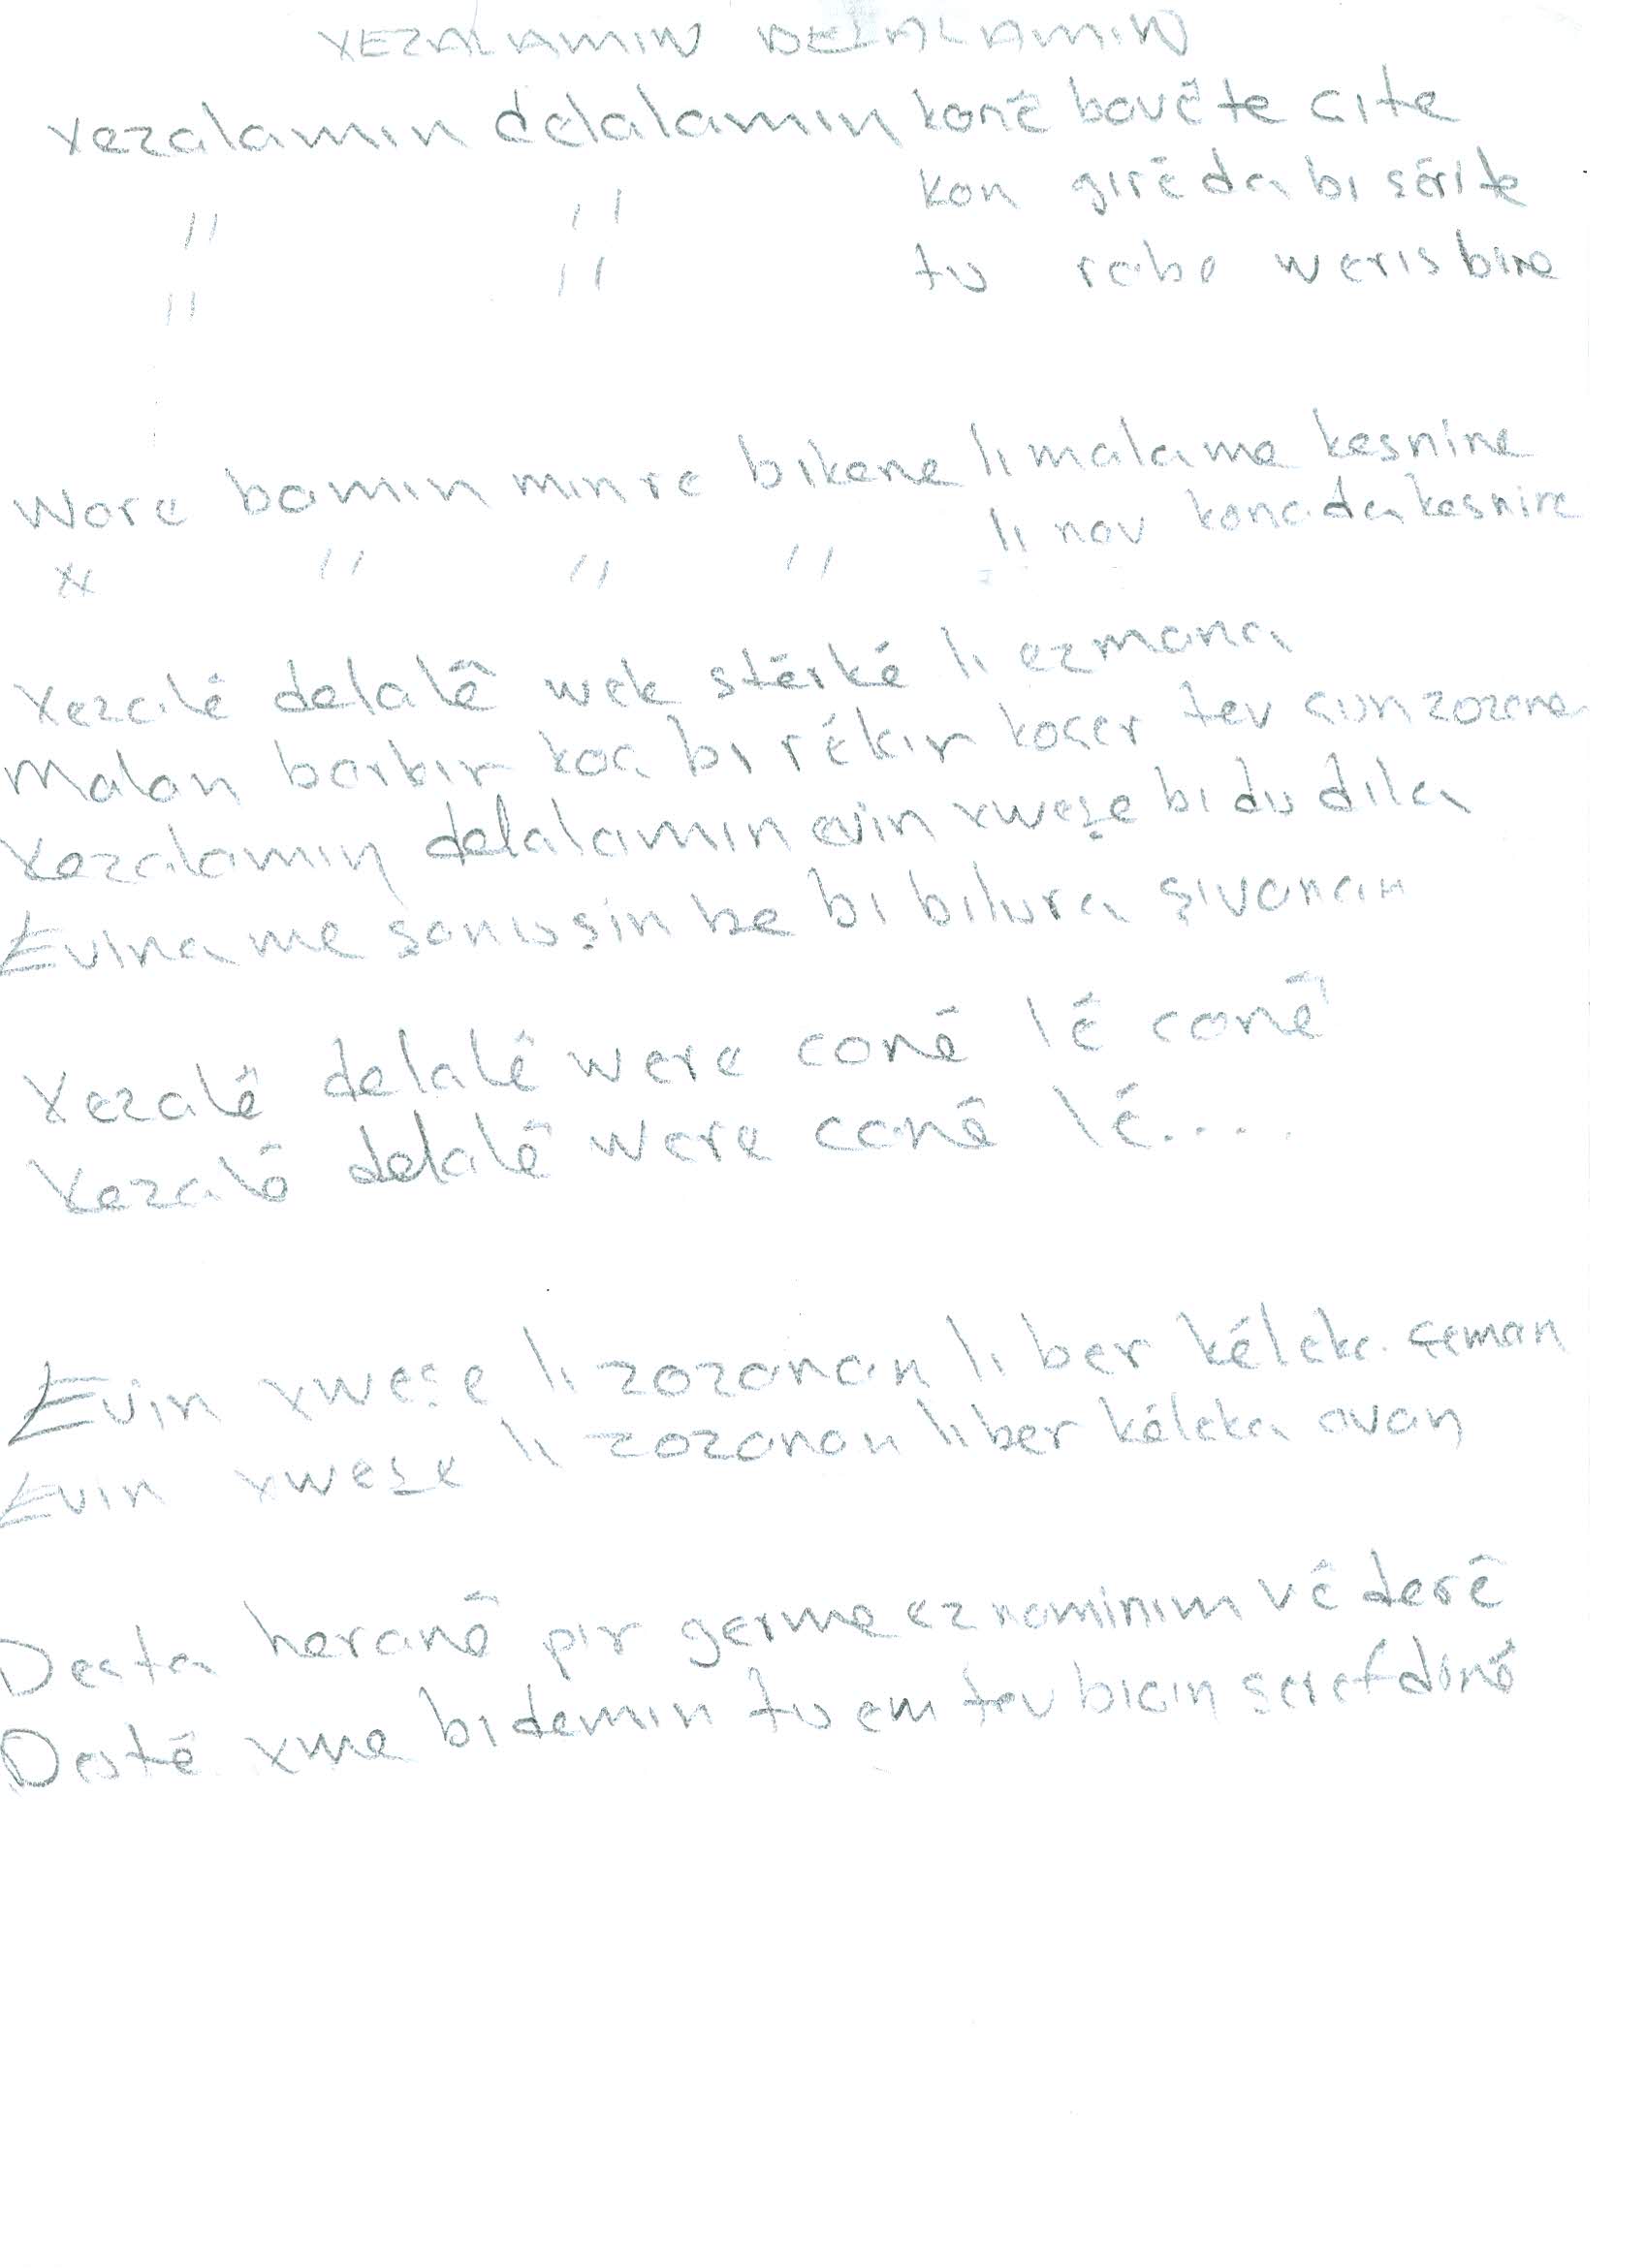 XEZALAMIN DELALAMIN
Xezalamın delalamın konê bavête cite
" " kon girêda bı sêrite
" " tu rabe weris bine
Were bamın mın re bikene lı mala me kesnine
" " " " lı nav konada kesnine
Xezalê delalê wek stêrkê lı ezmana
Malan barkır koc bı rêkır koçer tev cun zozana
Xezalamın delalamın evin xweşe bı du dıla
Evina me şanuşin be bı bılura şıvanan
Xezalê delalê were canê lê canê
Xezalê delalê were canê lê....
Evin xweşe lı zozanan lı ber kêleka çeman
Evin xweşe lı zozanan lı ber kêleka avan
Deşta heranê pır germe ez naminım vê derê
Destê xwe bıdemın tu em tev bıcin şerefdinê